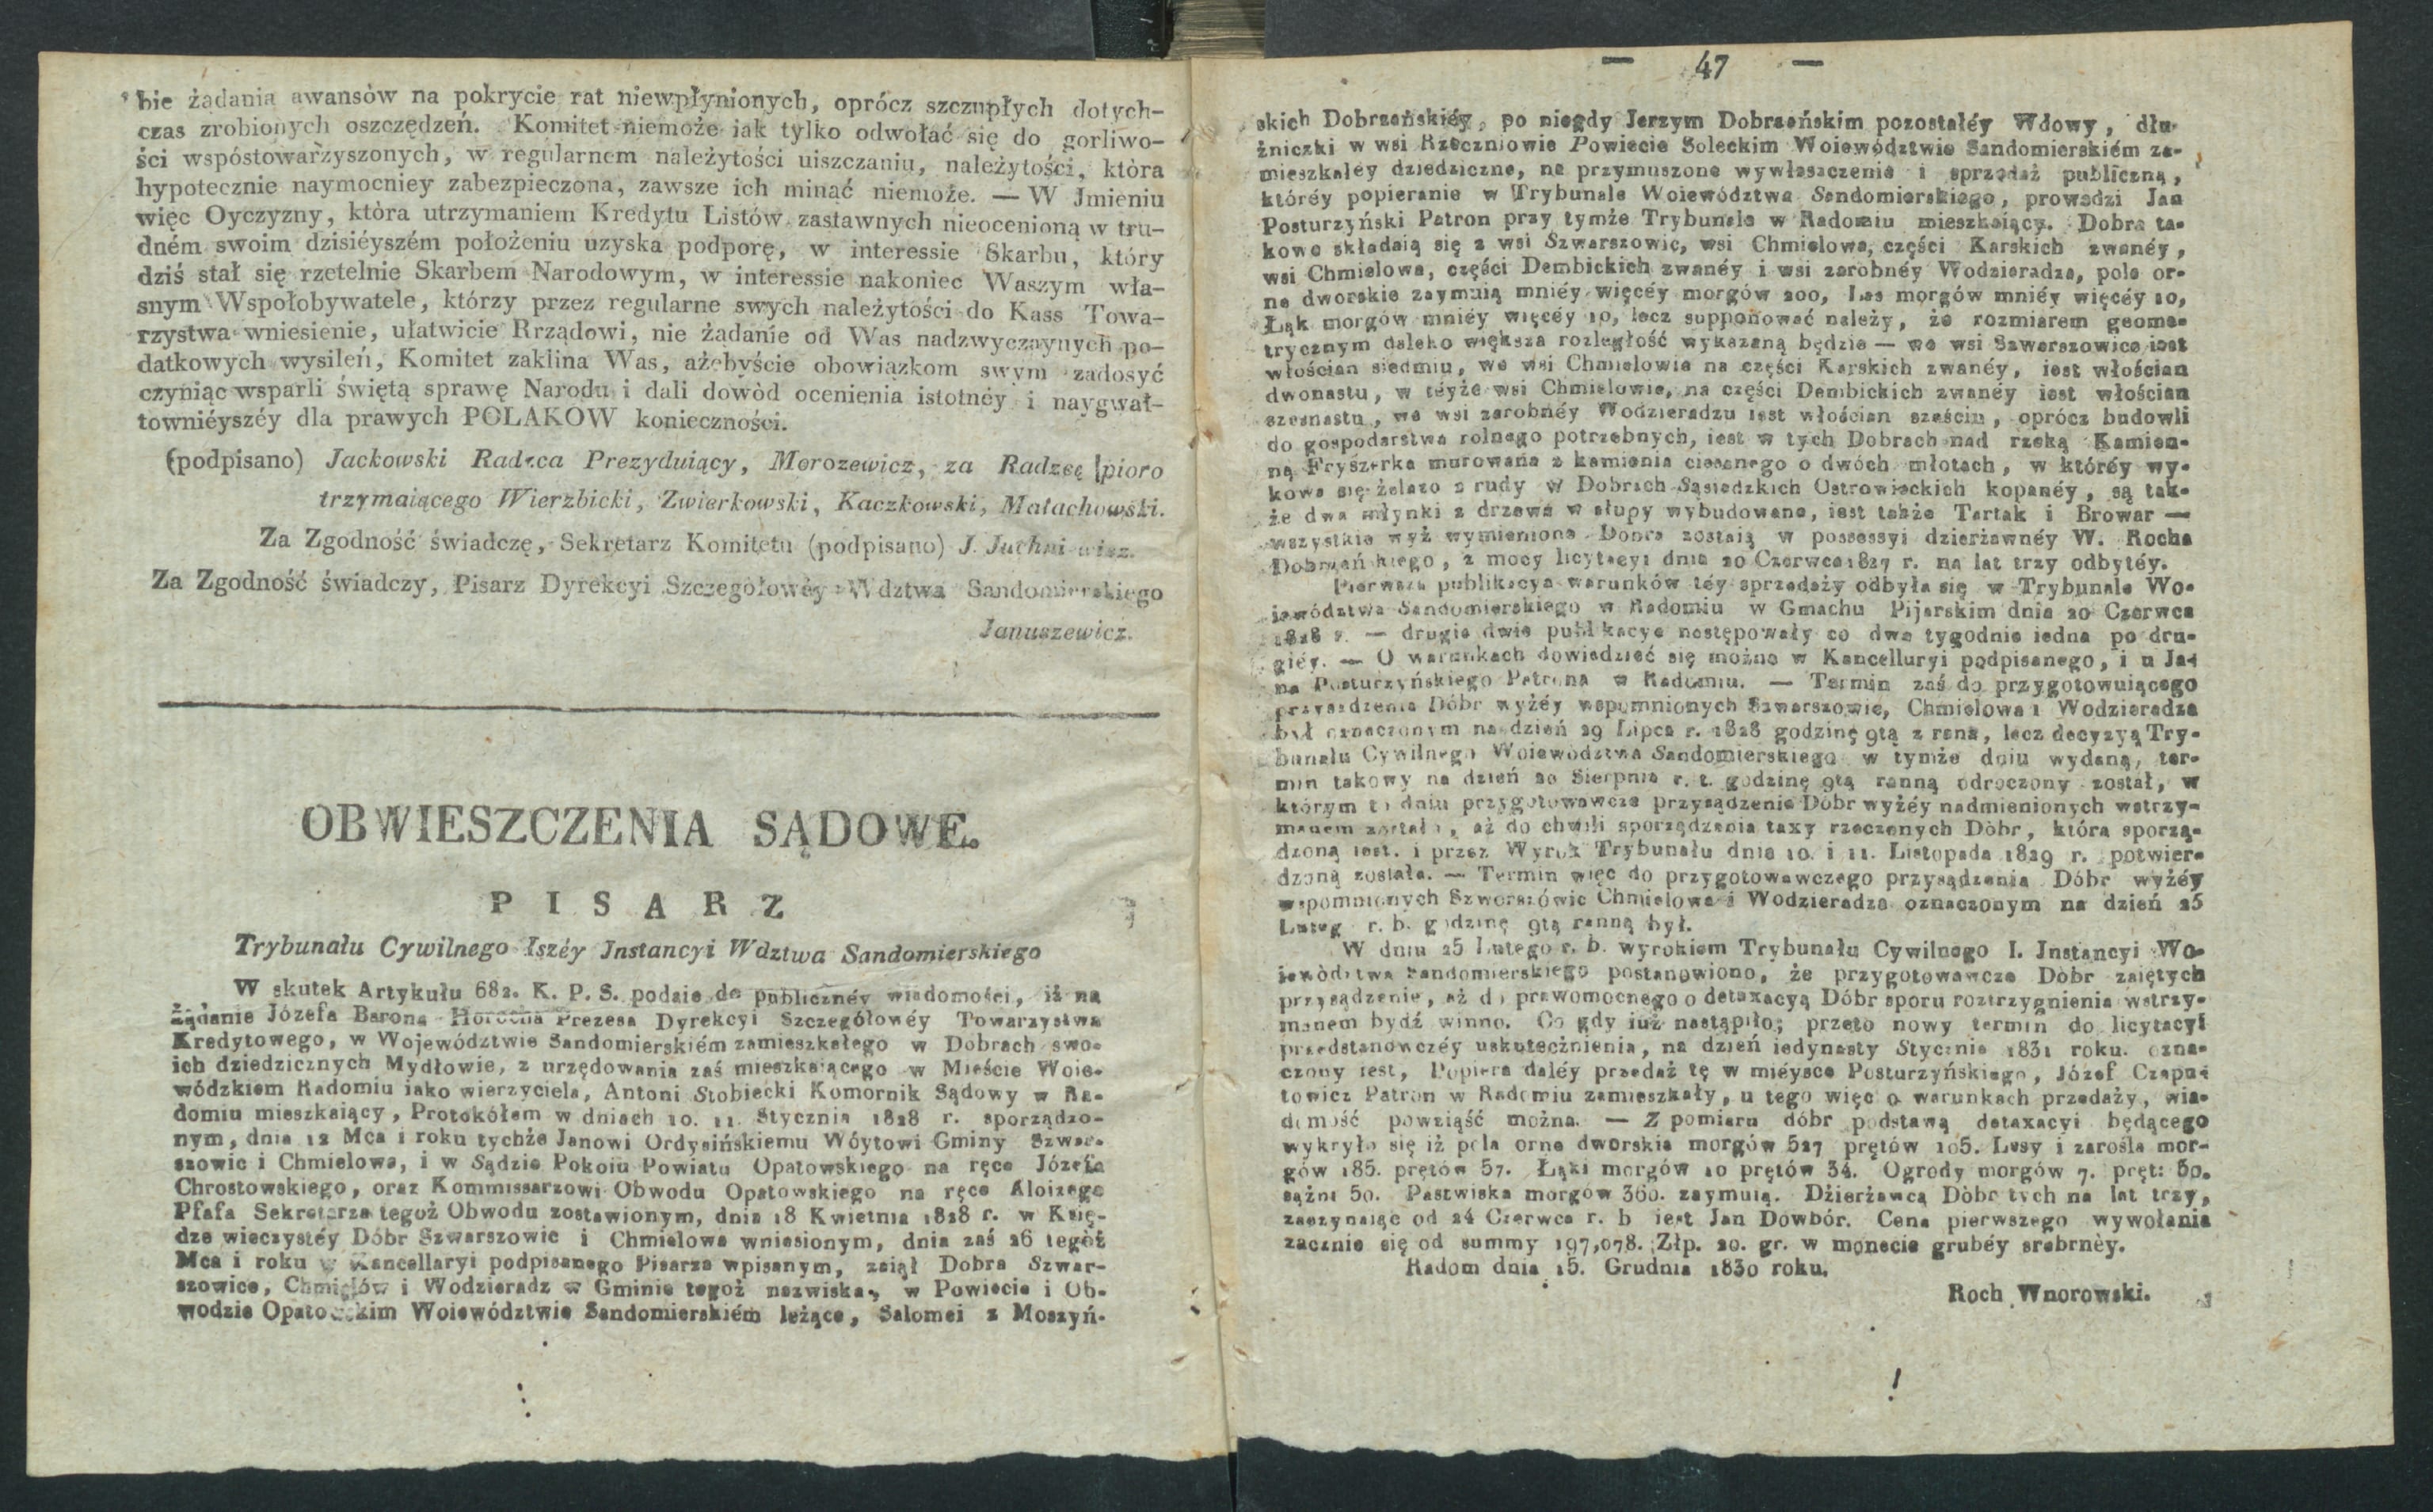 bie żądania awansòw na pokrycie rat niewpłynionych, oprócz szczupłych dotych-
czas zrobionych oszczędzeń. Komitet niemoże iak tylko odwołać się do gorliwo-
ści wspóstowarzyszonych, w regularnem należytości uiszczaniu, należytości, która
hypotecznie naymocniey zabezpieczona, zawsze ich minąć niemoże. — W Jmieniu
więc Oyczyzny, ktòra utrzymaniem Kredytu Listów zastawnych nieocenioną w tru-
dném swoim dzisiéyszém położeniu uzyska podporę, w interessie Skarbu, który
dziś stał się rzetelnie Skarbem Narodowym, w interessie nakoniec Waszym wła-
snym Wspołobywatele, którzy przez regularne swych należytości do Kass Towa-
rzystwa wniesienie, ułatwicie Rrządowi, nie żądanie od Was nadzwyczaynych po-
datkowych wysileń, Komitet zaklina Was, ażebyście obowiązkom swym zadosyć
czyniąc wsparli świętą sprawę Narodu i dali dowòd ocenienia istotnéy i naygwał-
towniéyszéy dla prawych POLAKOW konieczności.
(podpisano) Jackowski Radzca Prezyduiący, Morozewicz, za Radzcę pioro
trzymaiącego Wierzbicki, Zwierkowski, Kaczkowski, Małachowski.
Za Zgodność świadczę, Sekretarz Komitetu (podpisano) J.
Za Zgodność świadczy, Pisarz Dyrekcyi Szczegółowéy Wdztwa Sandomierskiego
Januszewicz.
OBWIESZCZENIA SĄDOWE.
PISARZ
Trybunału Cywilnego Iszéy Jnstancyi Wdztwa Sandomierskiego
W skutek Artykułu 682. K. P. S. podaie do publicznéy wiadomości, iż na
żądanie Józefa Barona Horocha Prezesa Dyrekcyi Szczegółowéy Towarzystwa
Kredytowego, w Wojewódz­twie Sandomierskiém zamieszkałego w Dobrach swo-
ich dziedzicznych Mydłowie, z urzędowania zaś mieszkaiącego w Mieście Woie-
wódzkiem Radomiu iako wierzyciela, Antoni Stobiecki Komornik Sądowy w Ra-
domiu mieszkaiący, Protokółem w dniach 10. 11. Stycznia 1828 r. sporządzo-
nym, dnia 12 Mca i roku tychże Janowi Ordysińskiemu Wóytowi Gminy Szwar-
szowic i Chmielowa, i w Sądzie Pokoiu Powiatu Opatowskiego na ręce Józefa
Chrostowskiego, oraz Kommissarzowi Obwodu Opatowskiego na ręce Aloizego
Pfafa Sekretarza tegoż Obwodu zostawionym, dnia 18 Kwietnia 1828 r. w Księ-
dze wieczystéy Dóbr Szwarszowic i Chmielowa wniesionym, dnia zaś 26 tegoż
Mca i roku w Kancellaryi podpisanego Pisarza wpisanym, zaiął Dobra Szwar-
szowice, Chmielów i Wodzieradz w Gminie tegoż nazwiska, w Powiecie i Ob-
wodzie Opatowskim Woiewództwie Sandomierskiém leżące, Salomei z Moszyń-
— 47 —
skich Dobrzańskiéy, po niegdy Jerzym Dobrzańskim pozostałéy Wdowy, dłu-
żniczki w wsi Rzeczniowie Powiecie Soleckim Woiewództwie Sandomierskiém za-
mieszkałéy dziedziczne, na przymuszone wywłaszczenie i sprzedaż publiczną,
któréy popieranie w Trybunale Woiewództwa Sandomierskiego, prowadzi Jan
Posturzyński Patron przy tymże Trybunale w Radomiu mieszkaiący. Dobra ta-
kowe składaią się z wsi Szwarszowic, wsi Chmielowa, części Karskich zwanéy,
wsi Chmielowa, części Dembickich zwanéy i wsi zarobnéy Wodzieradza, pola or-
ne dworskie zaymuią mniéy więcéy morgów 200, Las morgów mniéy więcéy 10,
Łąk morgów mniéy więcéy 10, lecz supponować należy, że rozmiarem geome-
trycznym daleko większa rozległość wykazaną będzie — we wsi Szwarszowice iest
włościan siedmiu, we wsi Chmielowie na części Karskich zwanéy, iest włościan
dwonastu, w téyże wsi Chmielowie, na części Dembickich zwanéy iest włościan
szesnastu, we wsi zarobnéy Wodzieradzu iest włościan sześciu, oprócz budowli
do gospodarstwa rolnego potrzebnych, iest w tych Dobrach nad rzeką Kamien-
ną Fryszerka murowana z kamienia ciesanego o dwóch młotach, w któréy wy-
kowa się żelazo z rudy w Dobrach Sąsiedzkich Ostrowieckich kopanéy, są tak-
że dwa młynki z drzewa w słupy wybudowane, iest także Tartak i Browar —
wszystkie wyż wymienione Dobra zostaią w possessyi dzierżawnéy W. Rocha
Dobrzańskiego, z mocy licytacyi dnia 20 Czerwca 1827 r. na lat trzy odbytéy.
Pierwsza publikacya warunków téy sprzedaży odbyła się w Trybunale Wo-
iewództwa Sandomierskiego w Radomiu w Gmachu Pijarskim dnia 20 Czerwca
1828 r. — drugie dwie publikacye następowały co dwa tygodnie iedna po dru-
giéy. — O warunkach dowiedzieć się można w Kancelluryi podpisanego, i u Ja-
na Posturzyńskiego Patrona w Radomiu. — Termin zaś do przygotowuiącego
przysądzenia Dóbr wyżéy wspomnionych Szwarszowic, Chmielowa i Wodzieradza
był oznaczonym na dzień 29 Lipca r. 1828 godzinę 9tą z rana, lecz decyzyą Try-
bunału Cywilnego Woiewództwa Sandomierskiego w tymże dniu wydaną, ter-
min takowy na dzień 20 Sierpnia r. t. godzinę 9tą ranną odroczony został, w
którym to dniu przygotowawcze przysądzenie Dóbr wyżéy nadmienionych wstrzy-
manem zostało, aż do chwili sporządzenia taxy rzeczonych Dòbr, która sporzą-
dzoną iest. i przez Wyrok Trybunału dnia 10. i 11. Listopada 1829 r. potwier-
dzoną została. — Termin więc do przygotowawczego przysądzenia Dóbr wyżéy
wspomnionych Szwarszówic Chmielowa i Wodzieradza oznaczonym na dzień 25
Luteg r. b. godzinę 9tą ranną był.
W dniu 25 Lutego r. b. wyrokiem Trybunału Cywilnego I. Jnstancyi Wo-
iewòdztwa Sandomierskiego postanowiono, że przygotowawcze Dòbr zaiętych
przysądzenie, aż do prawomocnego o detaxacyą Dóbr sporu roztrzygnienia wstrzy-
manem bydź winno. Co gdy iuż nastąpiło; przeto nowy termin do licytacyi
przedstanowczéy uskutecznienia, na dzień iedynasty Stycznia 1831 roku. ozna-
czony iest, Popiera daléy przedaż tę w miéysce Posturzyńskiego, Józef Czapu-
towicz Patron w Radomiu zamieszkały, u tego więc o warunkach przedaży, wia-
domość powziąść można. — Z pomiaru dóbr podstawą detaxacyi będącego
wykryło się iż pola orne dworskie morgów 527 prętów 105. Lasy i zarośla mor-
gów 185. prętów 57. Łąki morgów 10 prętów 34. Ogrody morgów 7. pręt: 50.
sążni 50. Pastwiska morgów 360. zaymuią. Dzierżawcą Dòbr tych na lat trzy,
zaczynaiąc od 24 Czerwca r. b iest Jan Dowbór. Cena pierwszego wywołania
zacznie się od summy 197,078. Złp. 20. gr. w monecie grubéy srebrnèy.
Radom dnia 15. Grudnia 1830 roku.
Roch Wnorowski.